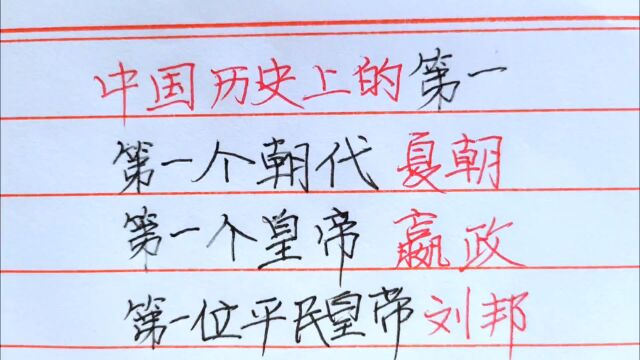 中国历史上的第一
第一个朝代 夏朝
第一个皇帝 嬴政
第一位平民皇帝 刘邦